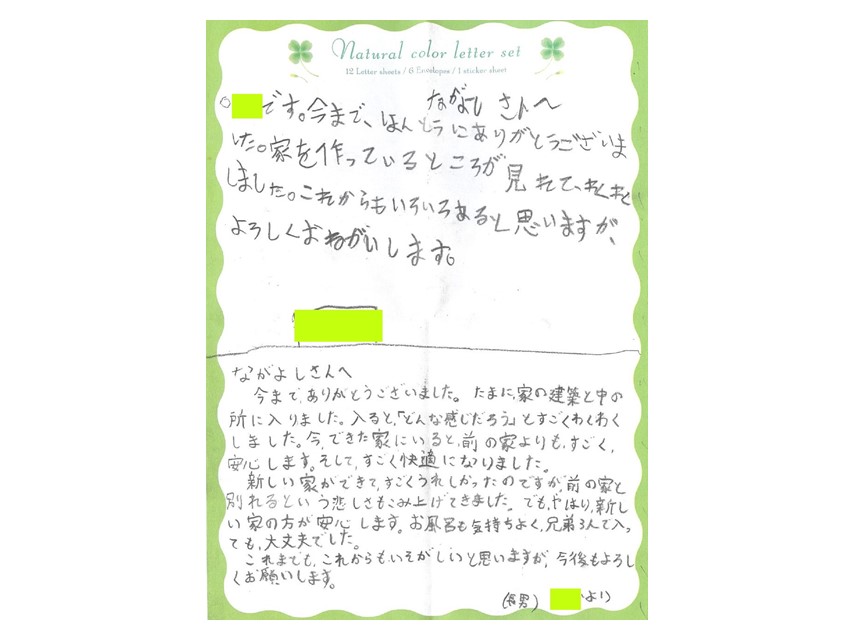 Natural color letter set
12 Letter sheets / 6 Envelopes / 1 sticker sheet
ながよし さんへ
です。今まで、ほんとうにありがとうございま
した。家を作っているところが見れて、わくわく
しました。これからもいろいろあると思いますが、
よろしくおねがいします。
ながよしさんへ
今まで、ありがとうございました。たまに、家の建築と中の
所に入りました。入ると、「どんな感じだろう」とすごくわくわく
しました。今、できた家にいると、前の家よりも、すごく、
安心します。そして、すごく快適になりました。
新しい家ができて、すごくうれしかったのですが、前の家と
別れるという悲しさもこみ上げてきました。でも、やはり、新し
い家の方が安心します。お風呂も気持ちよく、兄弟3人で入っ
ても、大丈夫でした。
これまでも、これからもいそがしいと思いますが、今後もよろし
くお願いします。
(長男) より